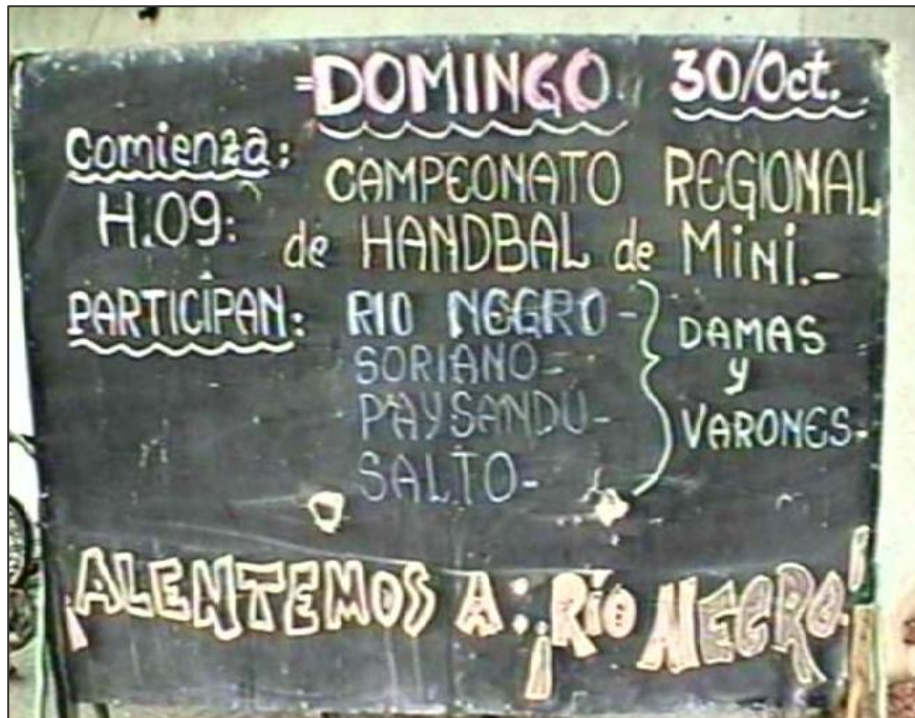 =DOMINGO 30/Oct.
Comienza: CAMPEONATO REGIONAL
H.09: de HANDBAL de Mini.-
PARTICIPAN: RIO NEGRO-
SORIANO-
PAYSANDU-
SALTO-
DAMAS
y
VARONES-
¡ALENTEMOS A: ¡RÍO NEGRO!